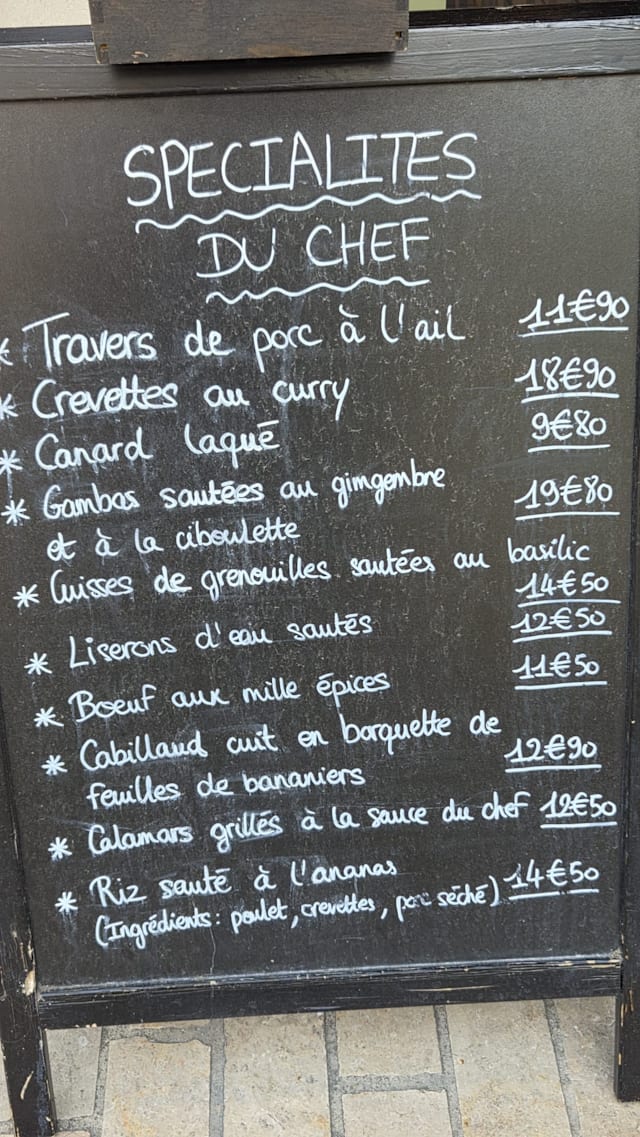 SPECIALITES
DU CHEF
* Travers de porc à l'ail 11€90
* Crevettes au curry 18€90
* Canard laqué 9€80
* Gambas sautées au gimgembre 19€80
et à la ciboulette
* Cuisses de grenouilles sautées au basilic
14€50
* Liserons d'eau sautés 12€50
* Boeuf aux mille épices 11€50
* Cabillaud cuit en barquette de
feuilles de bananiers 12€90
* Calamars grillés à la sauce du chef 12€50
* Riz sauté à l'ananas 14€50
(Ingrédients : poulet, crevettes, porc séché)